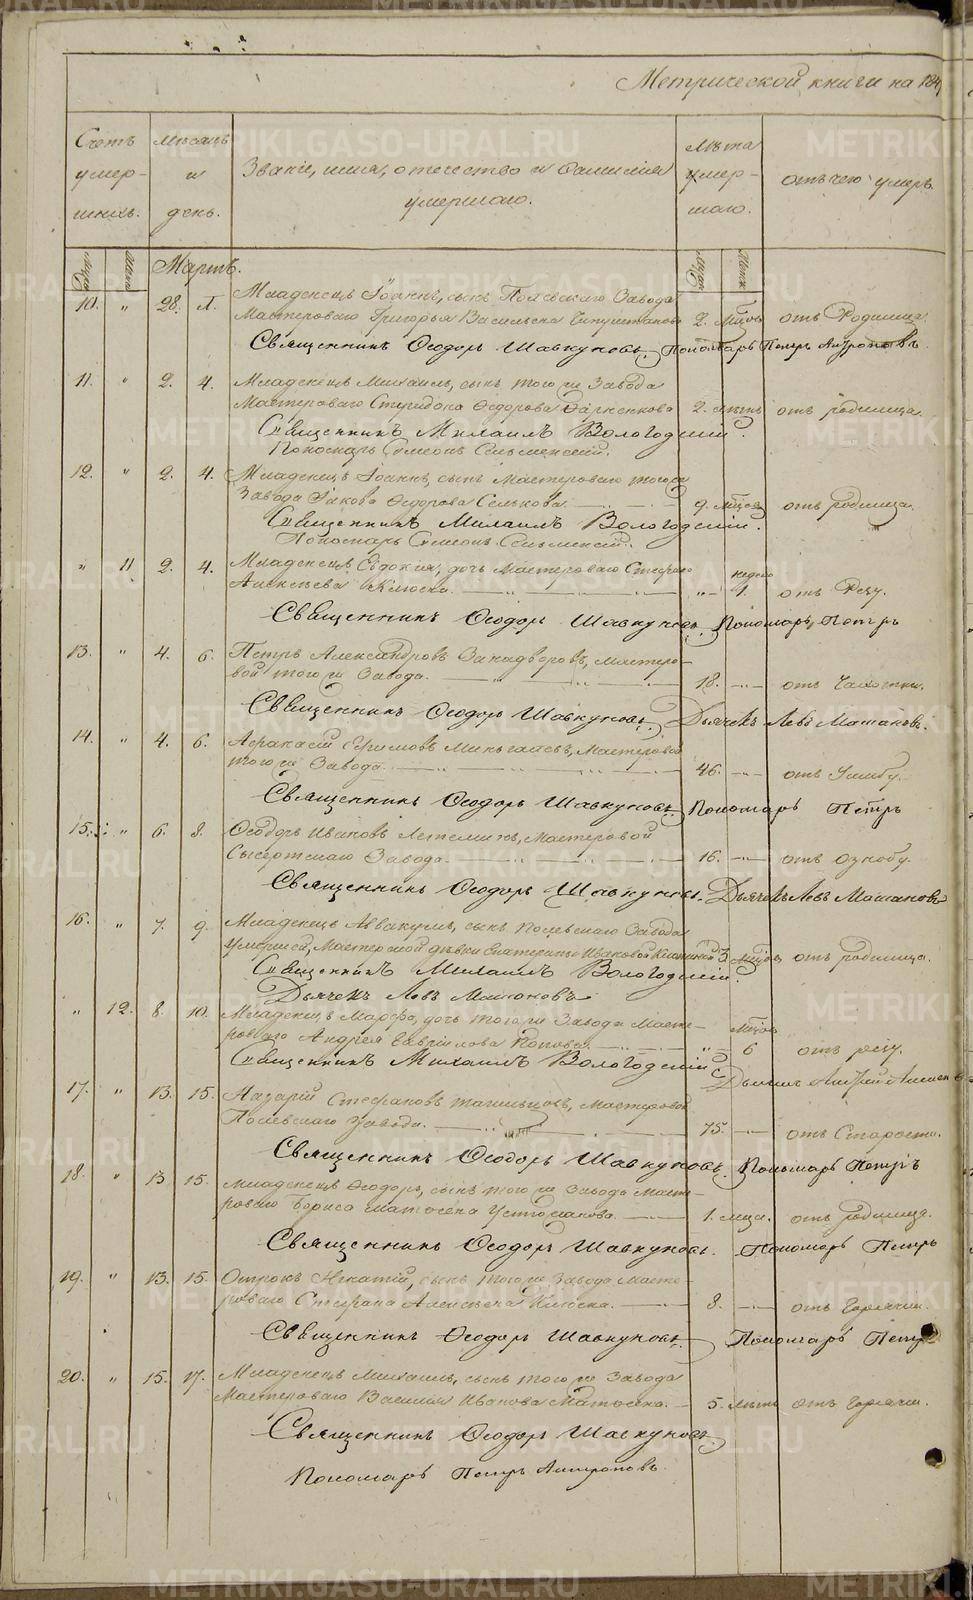 METRIKI.GASO-URAL.RU
Метрической книги на 184
Счетъ умер- шихъ.
Мѣсяцъ и день.
Званіе, имя, отчество и фамилія умершаго.
Лѣта умер- шаго.
отъ чего умеръ.
Мартъ.
10. „ 28. 1. Младенецъ Іоаннъ, сынъ Полевскаго Завода
Мастероваго Григорья Васильева 2. мѣсяц. отъ Родимца.
Священникъ Ѳеодоръ Шавкуновъ. Пономарь Петръ Антроповъ.
11. „ 2. 4. Младенецъ Михаилъ, сынъ того же Завода
Мастероваго Спиридона Ѳедорова 2. лѣтъ отъ родимца.
Священникъ Михаилъ Вологодскій.
Пономарь Симеонъ
12. „ 2. 4. Младенецъ Іоаннъ, сынъ Мастероваго тогоже
Завода Іакова Ѳедорова Селькова. 9. мѣсяц. отъ родимца.
Священникъ Михаилъ Вологодскій.
Пономарь Симеонъ
„ 11 2. 4. Младенецъ Евдокія, дочь Мастероваго Стефана
Алексѣева Клюева. „ недель 1. отъ Резу.
Священникъ Ѳеодоръ Шавкуновъ. Пономарь, Петръ
13. „ 4. 6. Петръ Александровъ Занадворовъ, мастеро-
вой того же Завода. 18. отъ Чахотки.
Священникъ Ѳеодоръ Шавкуновъ. Дьячекъ Левъ
14. „ 4. 6. Афанасій Ефимовъ Мастеровой
того же Завода. 46. отъ Ушибу.
Священникъ Ѳеодоръ Шавкуновъ. Пономарь Петръ
15. „ 6. 8. Ѳеодоръ Ивановъ Летеминъ, Мастеровой
Сысертскаго Завода. 16. отъ ознобу.
Священникъ Ѳеодоръ Шавкуновъ. Дьячекъ Левъ
16. „ 7. 9. Младенецъ Аввакумъ, сынъ Полевскаго Завода
Мастерской дѣвки Екатерины Ивановой 3 мѣсяц. отъ родимца.
Священникъ Михаилъ Вологодскій.
Дьячекъ Левъ
„ 12. 8. 10. Младенецъ Марѳа, дочь того же Завода Масте-
роваго Андрея Гаврилова Попова. „ мѣсяц. 6 отъ резу.
Священникъ Михаилъ Вологодскій
17. „ 13. 15. Назарій Стефановъ Мастеровой
Полевскаго Завода. 75. отъ Старости.
Священникъ Ѳеодоръ Шавкуновъ. Пономарь Петръ
18. „ 13 15. Младенецъ Ѳеодоръ, сынъ того же Завода Масте-
роваго Бориса Матѳеева Устюжанова. 1. мѣца. отъ родимца.
Священникъ Ѳеодоръ Шавкуновъ. Пономарь Петръ
19. „ 13. 15. Отрокъ Игнатій, сынъ того же Завода Масте-
роваго Стефана Алексѣева Клюева. 8. отъ Горячки.
Священникъ Ѳеодоръ Шавкуновъ. Пономарь Петръ
20. „ 15. 17. Младенецъ Михаилъ, сынъ того же Завода
Мастероваго Василія Иванова 5. лѣтъ отъ Горячки.
Священникъ Ѳеодоръ Шавкуновъ.
Пономарь Петръ Антроповъ.